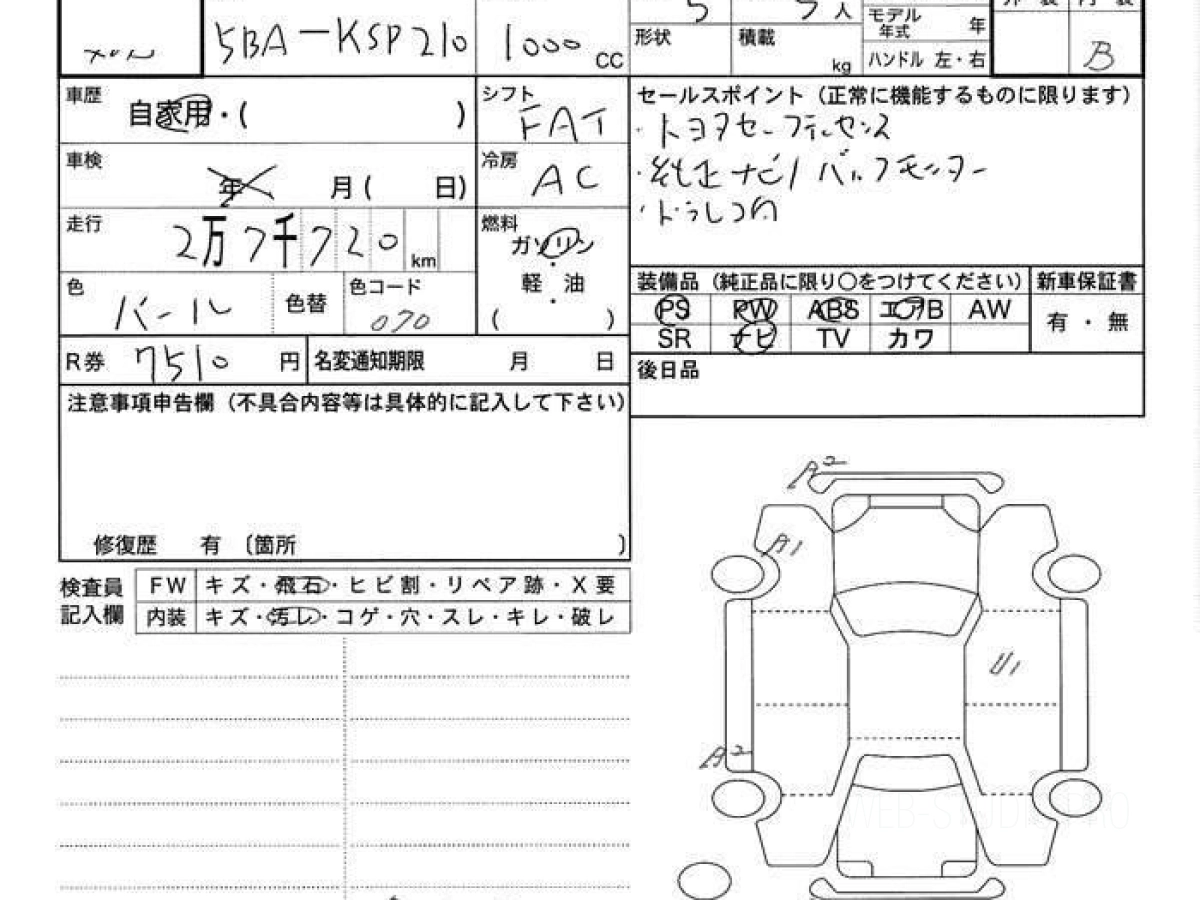 5 5人
モデル年式 年
5BA-KSP210 1000 CC 形状 積載 kg ハンドル 左・右 B
車歴 自家用・( ) シフト FAT セールスポイント(正常に機能するものに限ります)
・トヨタセーフティセンス
車検 年 月( 日) 冷房 AC ・純正ナビ/バックモニター
・ドラレコ付
走行 2万7千720km 燃料 ガソリン・軽・油 ( )
色 パール 色替 色コード 070
装備品(純正品に限り○をつけてください) 新車保証書
PS PW ABS エアB AW 有・無
SR ナビ TV カワ
R券 7510円 名変通知期限 月 日 後日品
注意事項申告欄(不具合内容等は具体的に記入して下さい)
A2
A1
修復歴 有〔箇所 〕
検査員記入欄 FW キズ・飛石・ヒビ割・リペア跡・X要
内装 キズ・汚レ・コゲ・穴・スレ・キレ・破レ
U1
A2